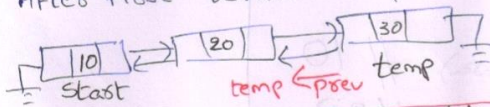 10 20 30
Start temp ← prev temp